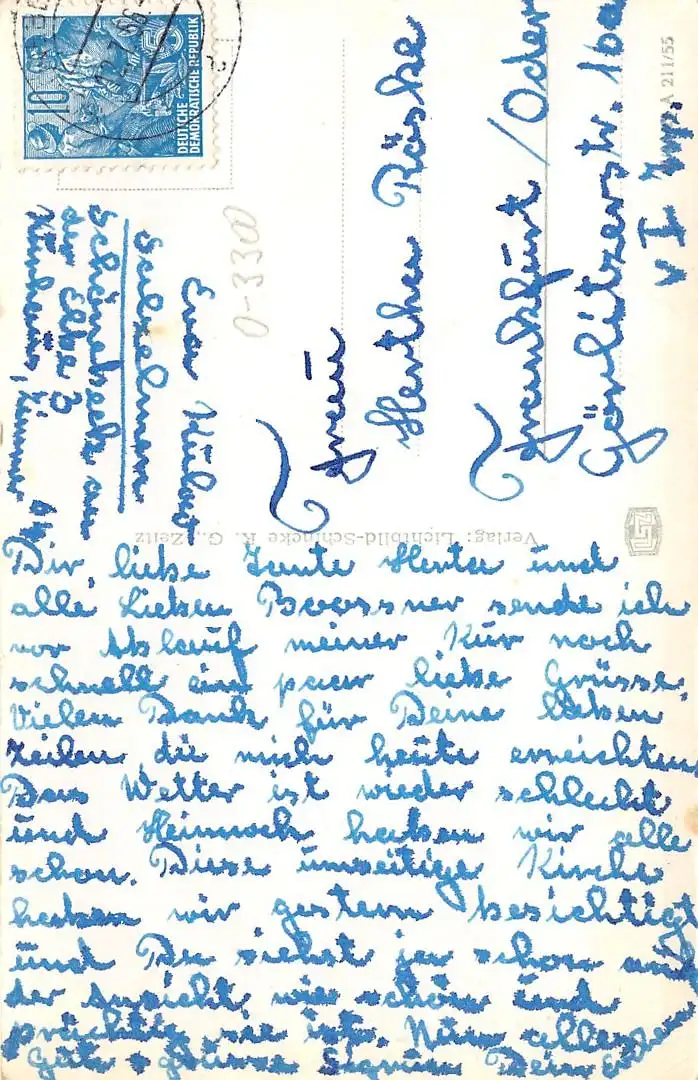 DEUTSCHE
DEMOKRATISCHE REPUBLIK
10
A 211/55
Frau
Hertha Röske
Frankfurt/Oder
Görlitzerstr. 16a
VI
0-3300
Eva
Salzelmen
Schönebeck an
der Elbe 3
Kurhaus, Zimmer
Verlag: Lichtbild-Schincke K. G., Zeitz
Dir, liebe Tante Herta und
alle Lieben sende ich
vor Ablauf meiner Kur noch
schnell ein paar liebe Grüsse.
Vielen Dank für Deine lieben
Zeilen, die mich heute erreichten
Das Wetter ist wieder schlecht
und Heimweh haben wir alle
schon. Diese umseitige Kirche
haben wir gestern besichtigt
und Du siehst ja schon auf
der Ansicht, wie schön und
prächtig sie ist. Nun alles
Gute + Grüsse Dein